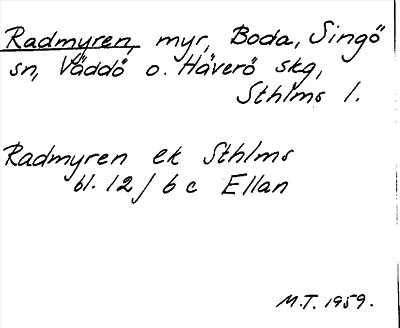 Radmyren, myr, Boda, Singö
sn, Väddö o. Häverö skg,
Sthlms l.
Radmyren ek Sthlms
bl. 12 / 6 c Ellan
M.T. 1959.